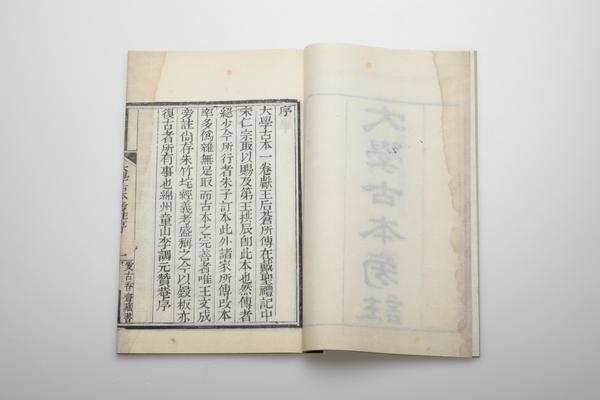 大學古本旁註
序
大學古本一卷獻王后蒼所傳在戴聖禮記中
宋仁宗取以賜及第王拱辰卽此本也然傳者
絕少今所行者朱子訂本此外諸家所傳改本
率多僞雜無足取而古本之完善者唯王文成
旁註尙存朱竹垞經義考盛稱之今以鋟板亦
復古者所有事也綿州童山李調元贊菴序
大學古本旁註序 一 愛古存齋藏書